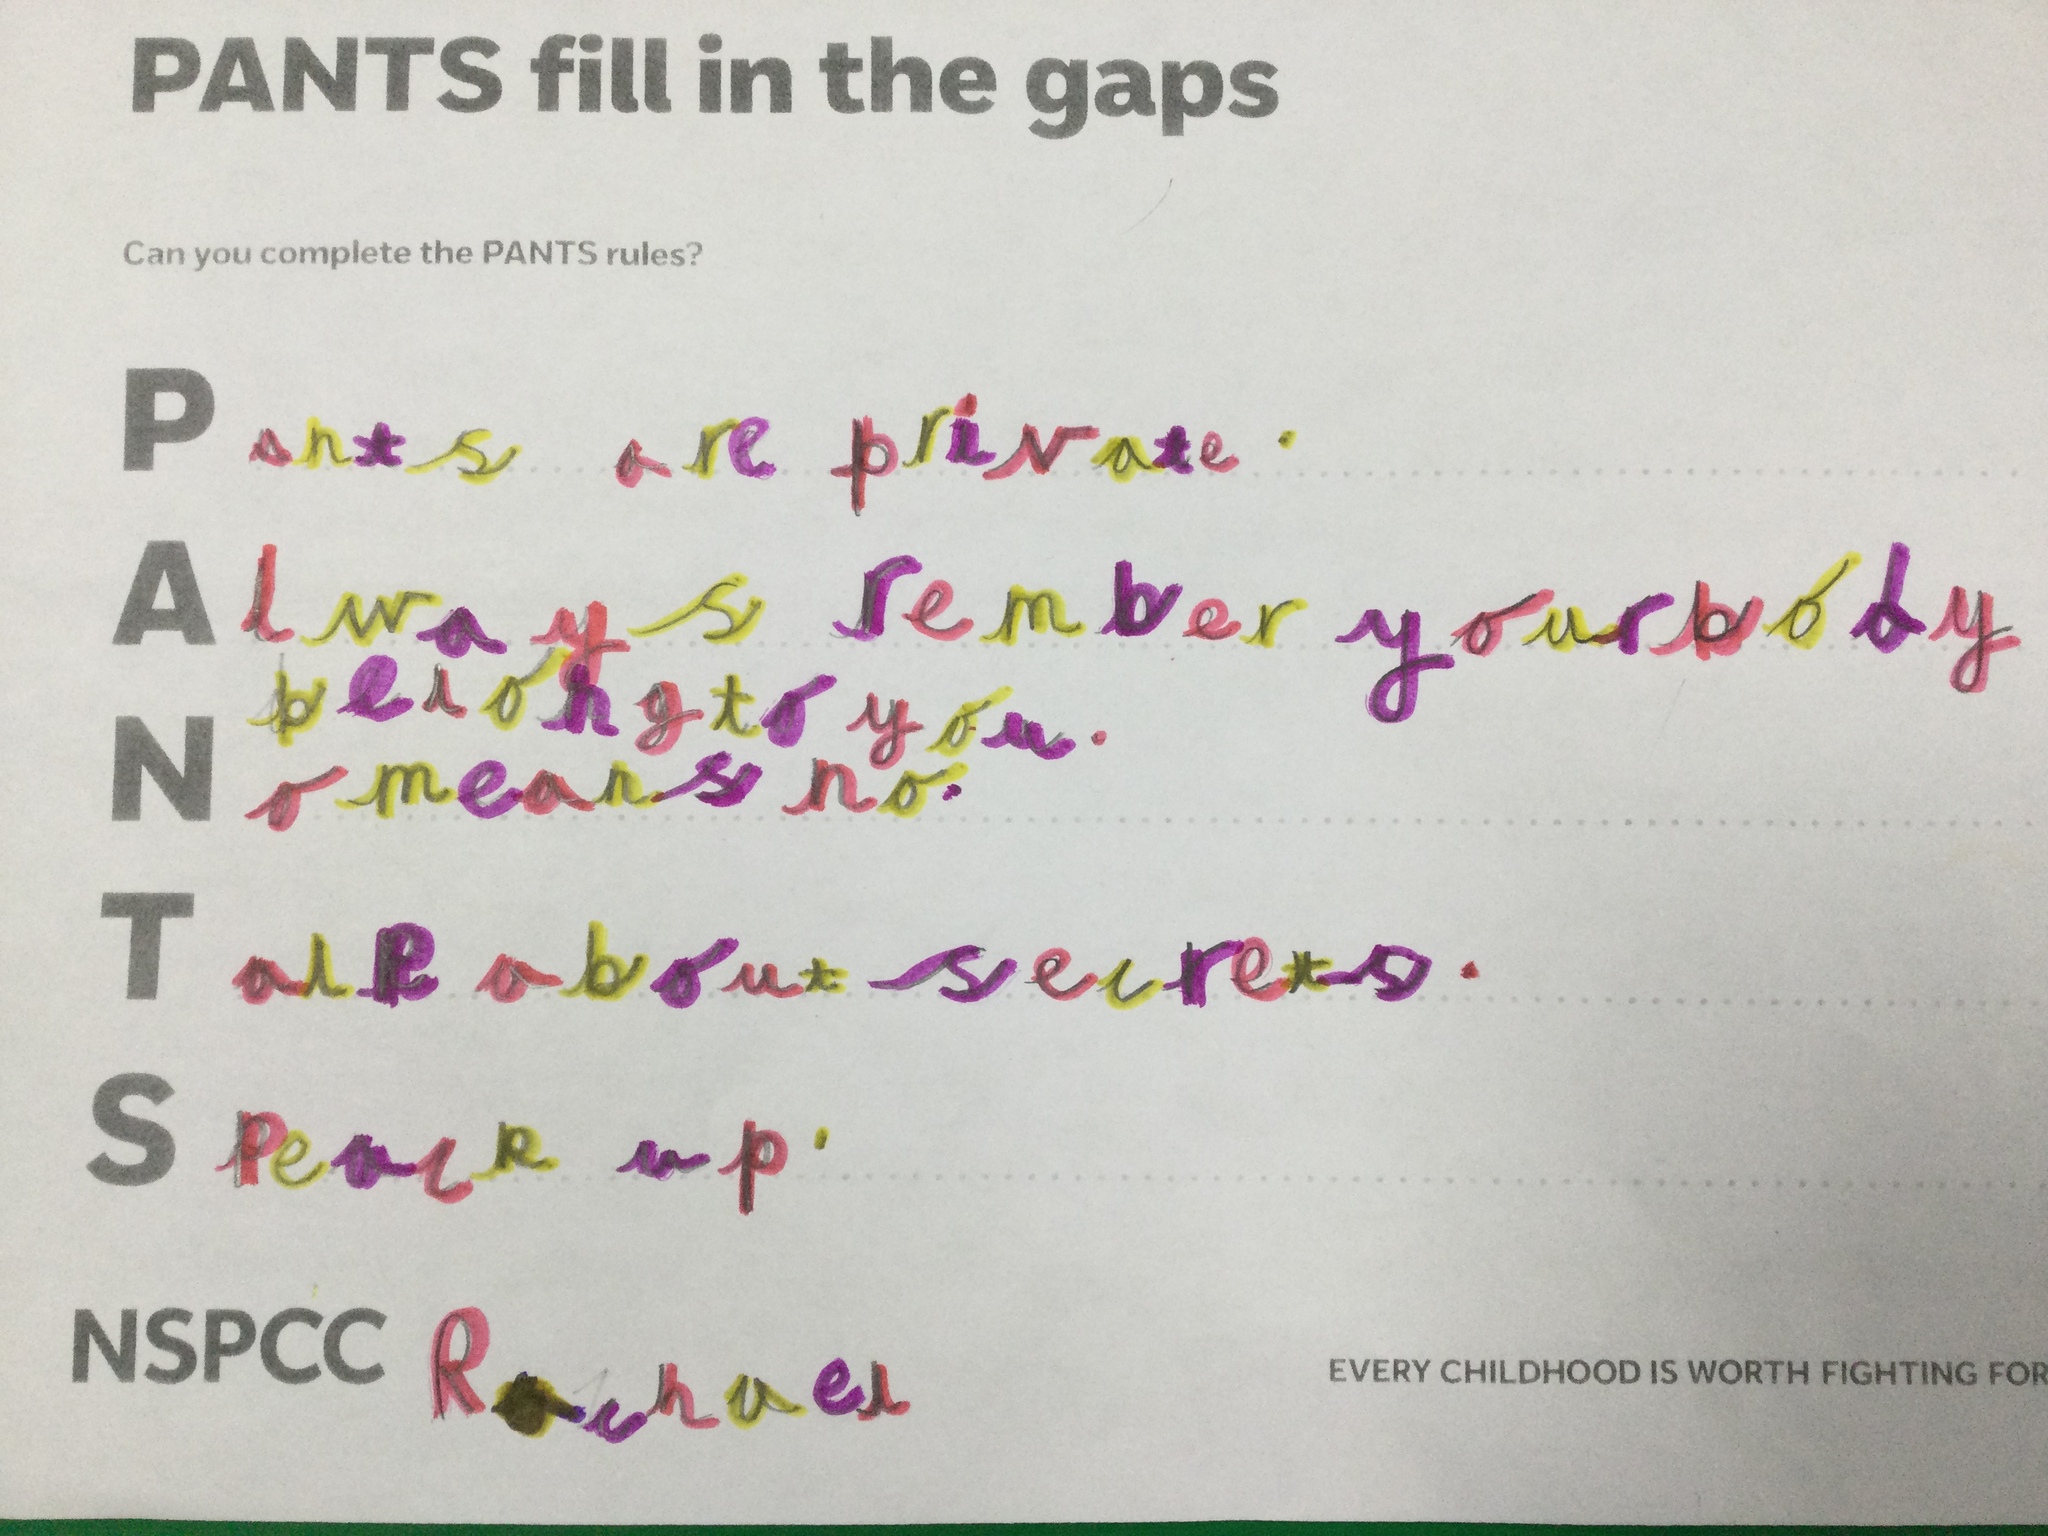 PANTS fill in the gaps
Can you complete the PANTS rules?
Pants are private.
Always rember your body
belong to you.
No means no.
Talk about secrets.
Speack up.
NSPCC Rachael
EVERY CHILDHOOD IS WORTH FIGHTING FOR